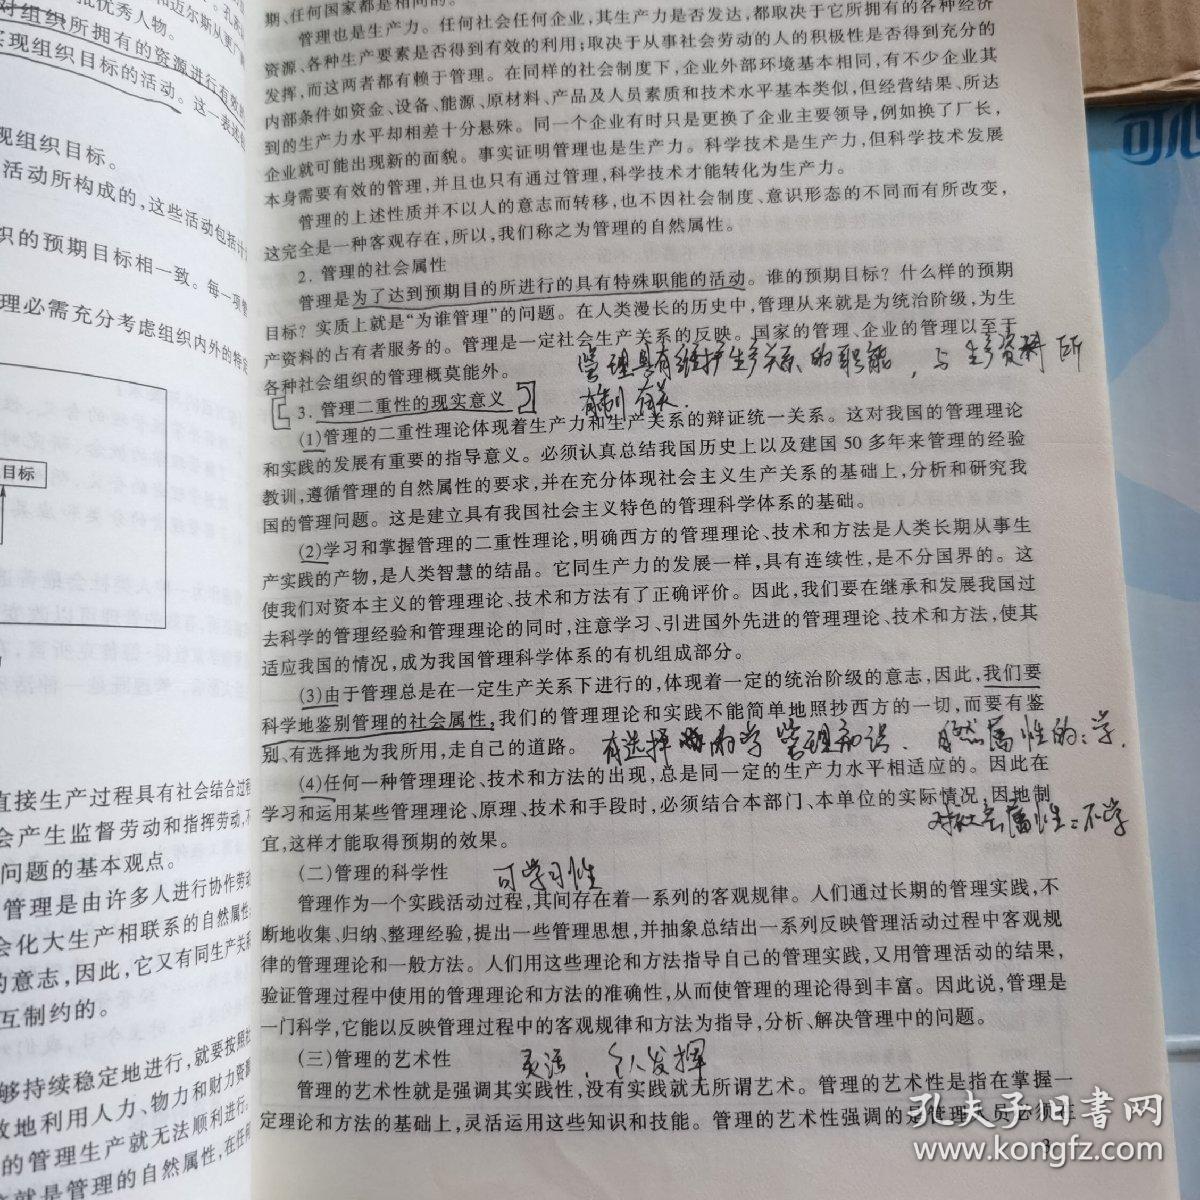 批优秀人物。
对组织所拥有的资源进行有效的
实现组织目标的活动。这一表述包
现组织目标。
活动所构成的,这些活动包括计
织的预期目标相一致。每一项管
理必需充分考虑组织内外的特定
目标
直接生产过程具有社会结合过程
会产生监督劳动和指挥劳动,不
问题的基本观点。
管理是由许多人进行协作劳动
会化大生产相联系的自然属性;
的意志,因此,它又有同生产关系
互制约的。
够持续稳定地进行,就要按照社
效地利用人力、物力和财力资源
的管理生产就无法顺利进行。
这就是管理的自然属性,在任何
期、任何国家都是相同的。
管理也是生产力。任何社会任何企业,其生产力是否发达,都取决于它所拥有的各种经济
资源、各种生产要素是否得到有效的利用;取决于从事社会劳动的人的积极性是否得到充分的
发挥,而这两者都有赖于管理。在同样的社会制度下,企业外部环境基本相同,有不少企业其
内部条件如资金、设备、能源、原材料、产品及人员素质和技术水平基本类似,但经营结果、所达
到的生产力水平却相差十分悬殊。同一个企业有时只是更换了企业主要领导,例如换了厂长,
企业就可能出现新的面貌。事实证明管理也是生产力。科学技术是生产力,但科学技术发展
本身需要有效的管理,并且也只有通过管理,科学技术才能转化为生产力。
管理的上述性质并不以人的意志而转移,也不因社会制度、意识形态的不同而有所改变,
这完全是一种客观存在,所以,我们称之为管理的自然属性。
2. 管理的社会属性
管理是为了达到预期目的所进行的具有特殊职能的活动。谁的预期目标?什么样的预期
目标?实质上就是“为谁管理”的问题。在人类漫长的历史中,管理从来就是为统治阶级,为生
产资料的占有者服务的。管理是一定社会生产关系的反映。国家的管理、企业的管理以至于
各种社会组织的管理概莫能外。
管理具有维护生产关系的职能,与生产资料所
有制有关.
3. 管理二重性的现实意义
(1)管理的二重性理论体现着生产力和生产关系的辩证统一关系。这对我国的管理理论
和实践的发展有重要的指导意义。必须认真总结我国历史上以及建国 50 多年来管理的经验
教训,遵循管理的自然属性的要求,并在充分体现社会主义生产关系的基础上,分析和研究我
国的管理问题。这是建立具有我国社会主义特色的管理科学体系的基础。
(2)学习和掌握管理的二重性理论,明确西方的管理理论、技术和方法是人类长期从事生
产实践的产物,是人类智慧的结晶。它同生产力的发展一样,具有连续性,是不分国界的。这
使我们对资本主义的管理理论、技术和方法有了正确评价。因此,我们要在继承和发展我国过
去科学的管理经验和管理理论的同时,注意学习、引进国外先进的管理理论、技术和方法,使其
适应我国的情况,成为我国管理科学体系的有机组成部分。
(3)由于管理总是在一定生产关系下进行的,体现着一定的统治阶级的意志,因此,我们要
科学地鉴别管理的社会属性,我们的管理理论和实践不能简单地照抄西方的一切,而要有鉴
别、有选择地为我所用,走自己的道路。
有选择的学管理知识、自然属性的:学.
(4)任何一种管理理论、技术和方法的出现,总是同一定的生产力水平相适应的。因此在
学习和运用某些管理理论、原理、技术和手段时,必须结合本部门、本单位的实际情况,因地制
宜,这样才能取得预期的效果。
对社会属性:不学
(二)管理的科学性
可学习性
管理作为一个实践活动过程,其间存在着一系列的客观规律。人们通过长期的管理实践,不
断地收集、归纳、整理经验,提出一些管理思想,并抽象总结出一系列反映管理活动过程中客观规
律的管理理论和一般方法。人们用这些理论和方法指导自己的管理实践,又用管理活动的结果,
验证管理过程中使用的管理理论和方法的准确性,从而使管理的理论得到丰富。因此说,管理是
一门科学,它能以反映管理过程中的客观规律和方法为指导,分析、解决管理中的问题。
(三)管理的艺术性
灵活、个人发挥
管理的艺术性就是强调其实践性,没有实践就无所谓艺术。管理的艺术性是指在掌握一
定理论和方法的基础上,灵活运用这些知识和技能。管理的艺术性强调的是管理人员必须在
3
可心
孔夫子旧书网
www.kongfz.com